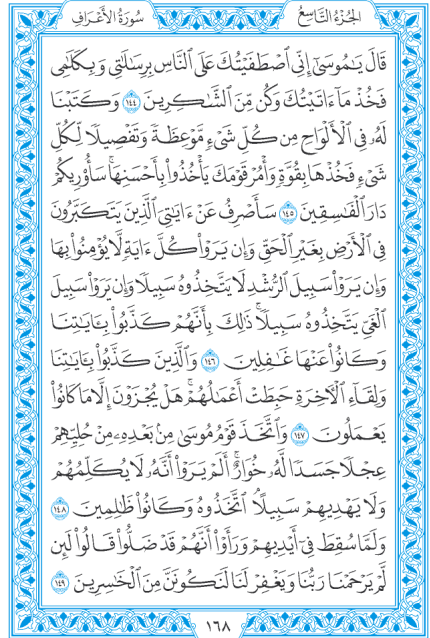 سُورَةُ الأَعْرَافِ
الجُزْءُ التَّاسِعُ
قَالَ يَٰمُوسَىٰٓ إِنِّي ٱصۡطَفَيۡتُكَ عَلَى ٱلنَّاسِ بِرِسَٰلَٰتِي وَبِكَلَٰمِي
فَخُذۡ مَآ ءَاتَيۡتُكَ وَكُن مِّنَ ٱلشَّٰكِرِينَ ١٤٤ وَكَتَبۡنَا
لَهُۥ فِي ٱلۡأَلۡوَاحِ مِن كُلِّ شَيۡءٖ مَّوۡعِظَةٗ وَتَفۡصِيلٗا لِّكُلِّ
شَيۡءٖ فَخُذۡهَا بِقُوَّةٖ وَأۡمُرۡ قَوۡمَكَ يَأۡخُذُواْ بِأَحۡسَنِهَاۚ سَأُوْرِيكُمۡ
دَارَ ٱلۡفَٰسِقِينَ ١٤٥ سَأَصۡرِفُ عَنۡ ءَايَٰتِيَ ٱلَّذِينَ يَتَكَبَّرُونَ
فِي ٱلۡأَرۡضِ بِغَيۡرِ ٱلۡحَقِّ وَإِن يَرَوۡاْ كُلَّ ءَايَةٖ لَّا يُؤۡمِنُواْ بِهَا
وَإِن يَرَوۡاْ سَبِيلَ ٱلرُّشۡدِ لَا يَتَّخِذُوهُ سَبِيلٗا وَإِن يَرَوۡاْ سَبِيلَ
ٱلۡغَيِّ يَتَّخِذُوهُ سَبِيلٗاۚ ذَٰلِكَ بِأَنَّهُمۡ كَذَّبُواْ بِـَٔايَٰتِنَا
وَكَانُواْ عَنۡهَا غَٰفِلِينَ ١٤٦ وَٱلَّذِينَ كَذَّبُواْ بِـَٔايَٰتِنَا
وَلِقَآءِ ٱلۡأٓخِرَةِ حَبِطَتۡ أَعۡمَٰلُهُمۡۚ هَلۡ يُجۡزَوۡنَ إِلَّا مَا كَانُواْ
يَعۡمَلُونَ ١٤٧ وَٱتَّخَذَ قَوۡمُ مُوسَىٰ مِنۢ بَعۡدِهِۦ مِنۡ حُلِيِّهِمۡ
عِجۡلٗا جَسَدٗا لَّهُۥ خُوَارٌۚ أَلَمۡ يَرَوۡاْ أَنَّهُۥ لَا يُكَلِّمُهُمۡ
وَلَا يَهۡدِيهِمۡ سَبِيلًاۘ ٱتَّخَذُوهُ وَكَانُواْ ظَٰلِمِينَ ١٤٨
وَلَمَّا سُقِطَ فِيٓ أَيۡدِيهِمۡ وَرَأَوۡاْ أَنَّهُمۡ قَدۡ ضَلُّواْ قَالُواْ لَئِن
لَّمۡ يَرۡحَمۡنَا رَبُّنَا وَيَغۡفِرۡ لَنَا لَنَكُونَنَّ مِنَ ٱلۡخَٰسِرِينَ ١٤٩
١٦٨